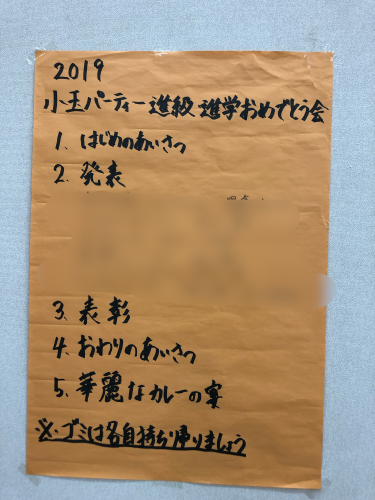 2019
小玉パーティー進級進学おめでとう会
1、はじめのあいさつ
2、発表
3、表彰
4、おわりのあいさつ
5、華麗なカレーの宴
※、ゴミは各自持ち帰りましょう